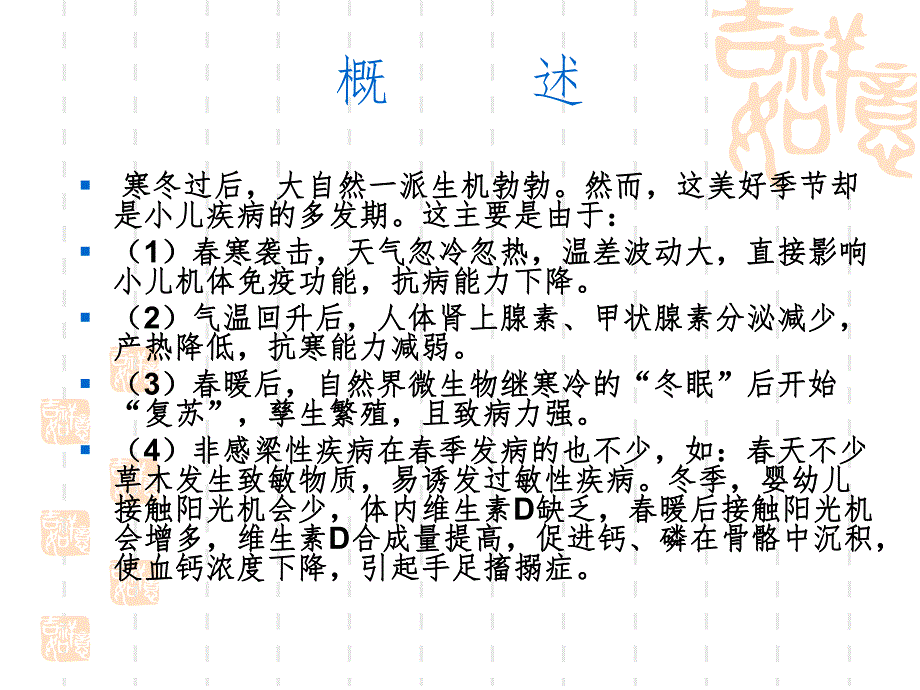 吉祥
如意
概 述
寒冬过后，大自然一派生机勃勃。然而，这美好季节却
是小儿疾病的多发期。这主要是由于：
（1）春寒袭击，天气忽冷忽热，温差波动大，直接影响
小儿机体免疫功能，抗病能力下降。
（2）气温回升后，人体肾上腺素、甲状腺素分泌减少，
产热降低，抗寒能力减弱。
（3）春暖后，自然界微生物继寒冷的“冬眠”后开始
“复苏”，孳生繁殖，且致病力强。
（4）非感梁性疾病在春季发病的也不少，如：春天不少
草木发生致敏物质，易诱发过敏性疾病。冬季，婴幼儿
接触阳光机会少，体内维生素D缺乏，春暖后接触阳光机
会增多，维生素D合成量提高，促进钙、磷在骨骼中沉积，
使血钙浓度下降，引起手足搐搦症。